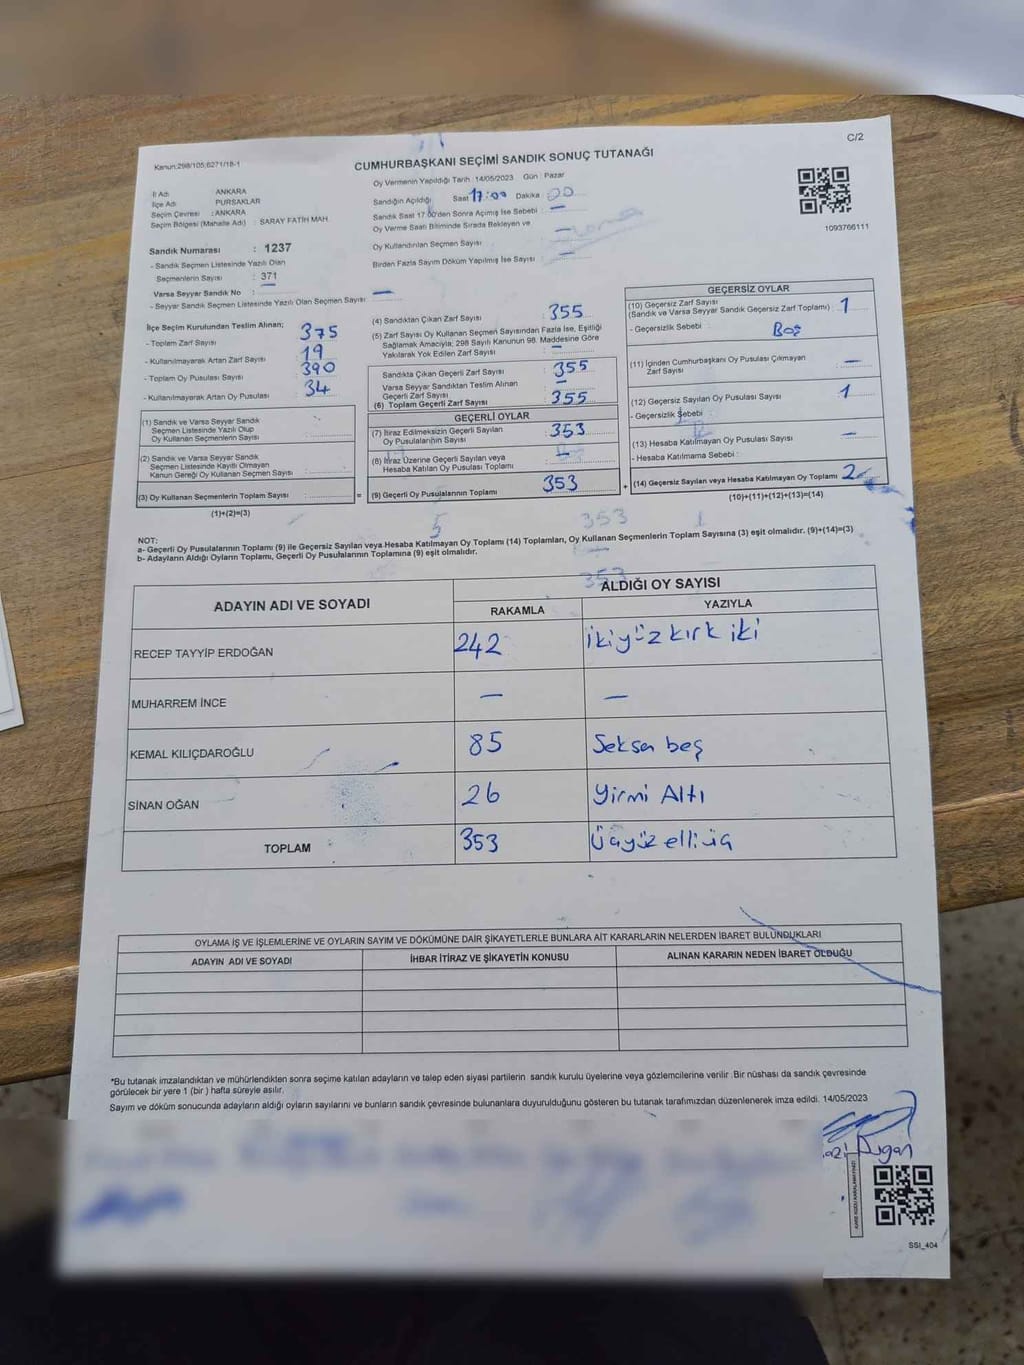 C/2
Kanun:298/105;6271/18-1
CUMHURBAŞKANI SEÇİMİ SANDIK SONUÇ TUTANAĞI
İl Adı ANKARA
İlçe Adı PURSAKLAR
Seçim Çevresi : ANKARA
Seçim Bölgesi (Mahalle Adı) : SARAY FATİH MAH.
Oy Vermenin Yapıldığı Tarih : 14/05/2023 Gün : Pazar
Sandığın Açıldığı Saat 17:00 Dakika : 00
Sandık Saat 17.00'den Sonra Açımış İse Sebebi : —
Oy Verme Saati Bitiminde Sırada Bekleyen ve
Oy Kullandırılan Seçmen Sayısı —
Birden Fazla Sayım Döküm Yapılmış İse Sayısı : —
1093766111
Sandık Numarası : 1237
- Sandık Seçmen Listesinde Yazılı Olan
Seçmenlerin Sayısı : 371
Varsa Seyyar Sandık No : —
- Seyyar Sandık Seçmen Listesinde Yazılı Olan Seçmen Sayısı :
İlçe Seçim Kurulundan Teslim Alınan;
- Toplam Zarf Sayısı 375
- Kullanılmayarak Artan Zarf Sayısı 19
- Toplam Oy Pusulası Sayısı 390
- Kullanılmayarak Artan Oy Pusulası 34
(1) Sandık ve Varsa Seyyar Sandık
Seçmen Listesinde Yazılı Olup
Oy Kullanan Seçmenlerin Sayısı :
(2) Sandık ve Varsa Seyyar Sandık
Seçmen Listesinde Kayıtlı Olmayan
Kanun Gereği Oy Kullanan Seçmen Sayısı :
(3) Oy Kullanan Seçmenlerin Toplam Sayısı :
(1)+(2)=(3)
(4) Sandıktan Çıkan Zarf Sayısı : 355
(5) Zarf Sayısı Oy Kullanan Seçmen Sayısından Fazla İse, Eşitliği
Sağlamak Amacıyla; 298 Sayılı Kanunun 98. Maddesine Göre
Yakılarak Yok Edilen Zarf Sayısı : —
Sandıkta Çıkan Geçerli Zarf Sayısı : 355
Varsa Seyyar Sandıktan Teslim Alınan
Geçerli Zarf Sayısı : —
(6) Toplam Geçerli Zarf Sayısı : 355
GEÇERLİ OYLAR
(7) İtiraz Edilmeksizin Geçerli Sayılan
Oy Pusulalarının Sayısı : 353
(8) İtiraz Üzerine Geçerli Sayılan veya
Hesaba Katılan Oy Pusulası Toplamı : —
= (9) Geçerli Oy Pusulalarının Toplamı 353
GEÇERSİZ OYLAR
(10) Geçersiz Zarf Sayısı
(Sandık ve Varsa Seyyar Sandık Geçersiz Zarf Toplamı) : 1
- Geçersizlik Sebebi : Boş
(11) İçinden Cumhurbaşkanı Oy Pusulası Çıkmayan
Zarf Sayısı : —
(12) Geçersiz Sayılan Oy Pusulası Sayısı : 1
- Geçersizlik Sebebi :
(13) Hesaba Katılmayan Oy Pusulası Sayısı : —
- Hesaba Katılmama Sebebi :
+ (14) Geçersiz Sayılan veya Hesaba Katılmayan Oy Toplamı 2
(10)+(11)+(12)+(13)=(14)
NOT:
a- Geçerli Oy Pusulalarının Toplamı (9) ile Geçersiz Sayılan veya Hesaba Katılmayan Oy Toplamı (14) Toplamları, Oy Kullanan Seçmenlerin Toplam Sayısına (3) eşit olmalıdır. (9)+(14)=(3)
b- Adayların Aldığı Oyların Toplamı, Geçerli Oy Pusulalarının Toplamına (9) eşit olmalıdır.
ADAYIN ADI VE SOYADI ALDIĞI OY SAYISI
RAKAMLA YAZIYLA
RECEP TAYYİP ERDOĞAN 242 İkiyüz kırk iki
MUHARREM İNCE — —
KEMAL KILIÇDAROĞLU 85 Seksen beş
SİNAN OĞAN 26 Yirmi Altı
TOPLAM 353 Üçyüz elli üç
OYLAMA İŞ VE İŞLEMLERİNE VE OYLARIN SAYIM VE DÖKÜMÜNE DAİR ŞİKAYETLERLE BUNLARA AİT KARARLARIN NELERDEN İBARET BULUNDUKLARI
ADAYIN ADI VE SOYADI İHBAR İTİRAZ VE ŞİKAYETİN KONUSU ALINAN KARARIN NEDEN İBARET OLDUĞU
*Bu tutanak imzalandıktan ve mühürlendikten sonra seçime katılan adayların ve talep eden siyasi partilerin sandık kurulu üyelerine veya gözlemcilerine verilir .Bir nüshası da sandık çevresinde
görülecek bir yere 1 (bir ) hafta süreyle asılır.
Sayım ve döküm sonucunda adayların aldığı oyların sayılarını ve bunların sandık çevresinde bulunanlara duyurulduğunu gösteren bu tutanak tarafımızdan düzenlenerek imza edildi. 14/05/2023
SSI_404